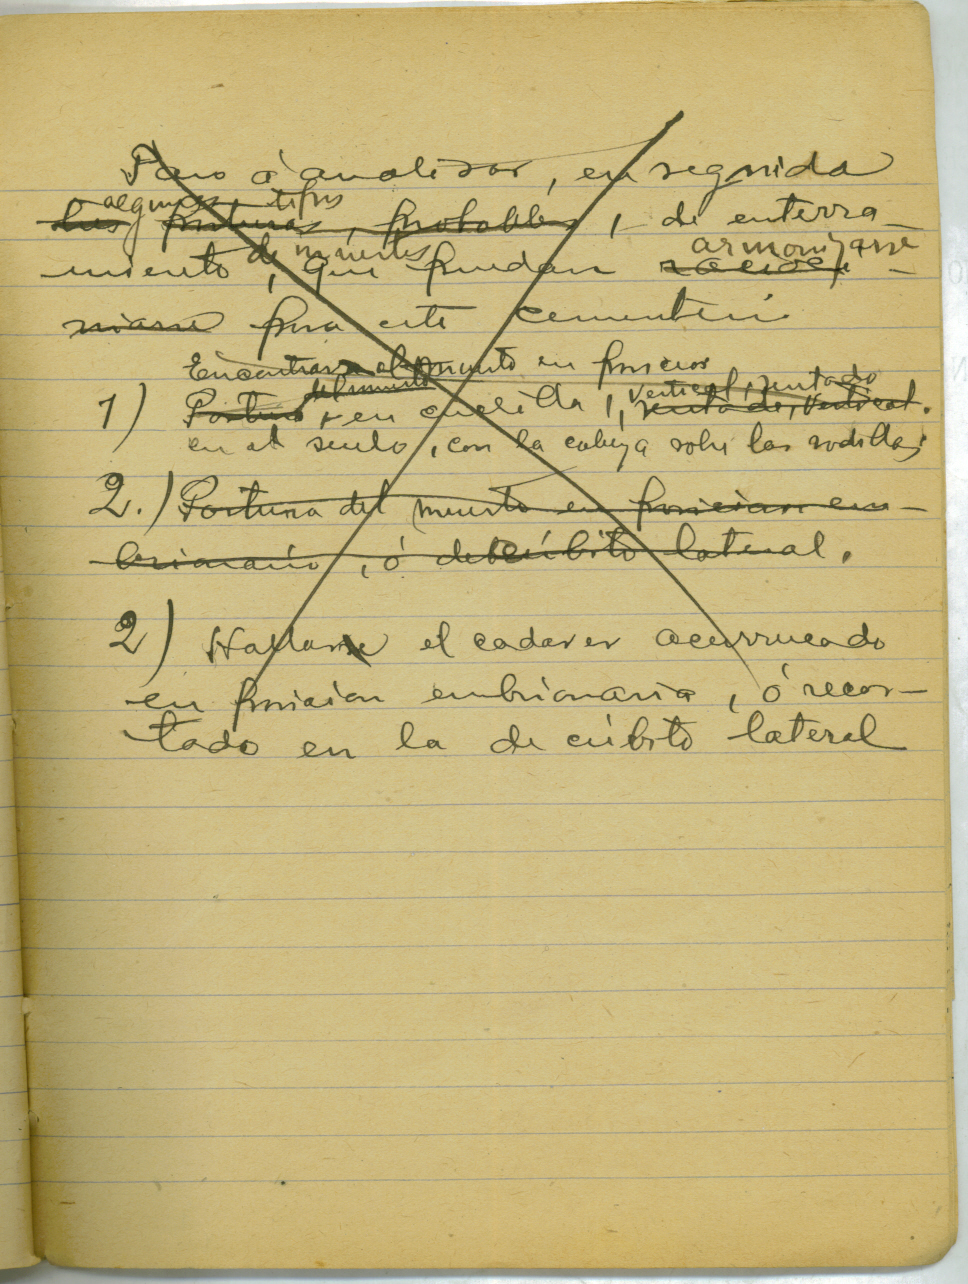 Paso á analizar, en seguida
algunos tipos
las posturas, probables, de enterra-
de muertos armonizarse
miento, que puedan racioci-
narse para este cementerio.
Encontrarse el muerto en posicion
del muerto vertical, sentado
1) Postura, en cuclilla, sentado, vertical.
en el suelo, con la cabeza sobre las rodillas;
2.) Postura del muerto en posicion em-
brionario, ó decúbito lateral.
2) Hallarse el cadaver acurrucado
en posicion embrionaria, ó recos-
tado en la de cúbito lateral